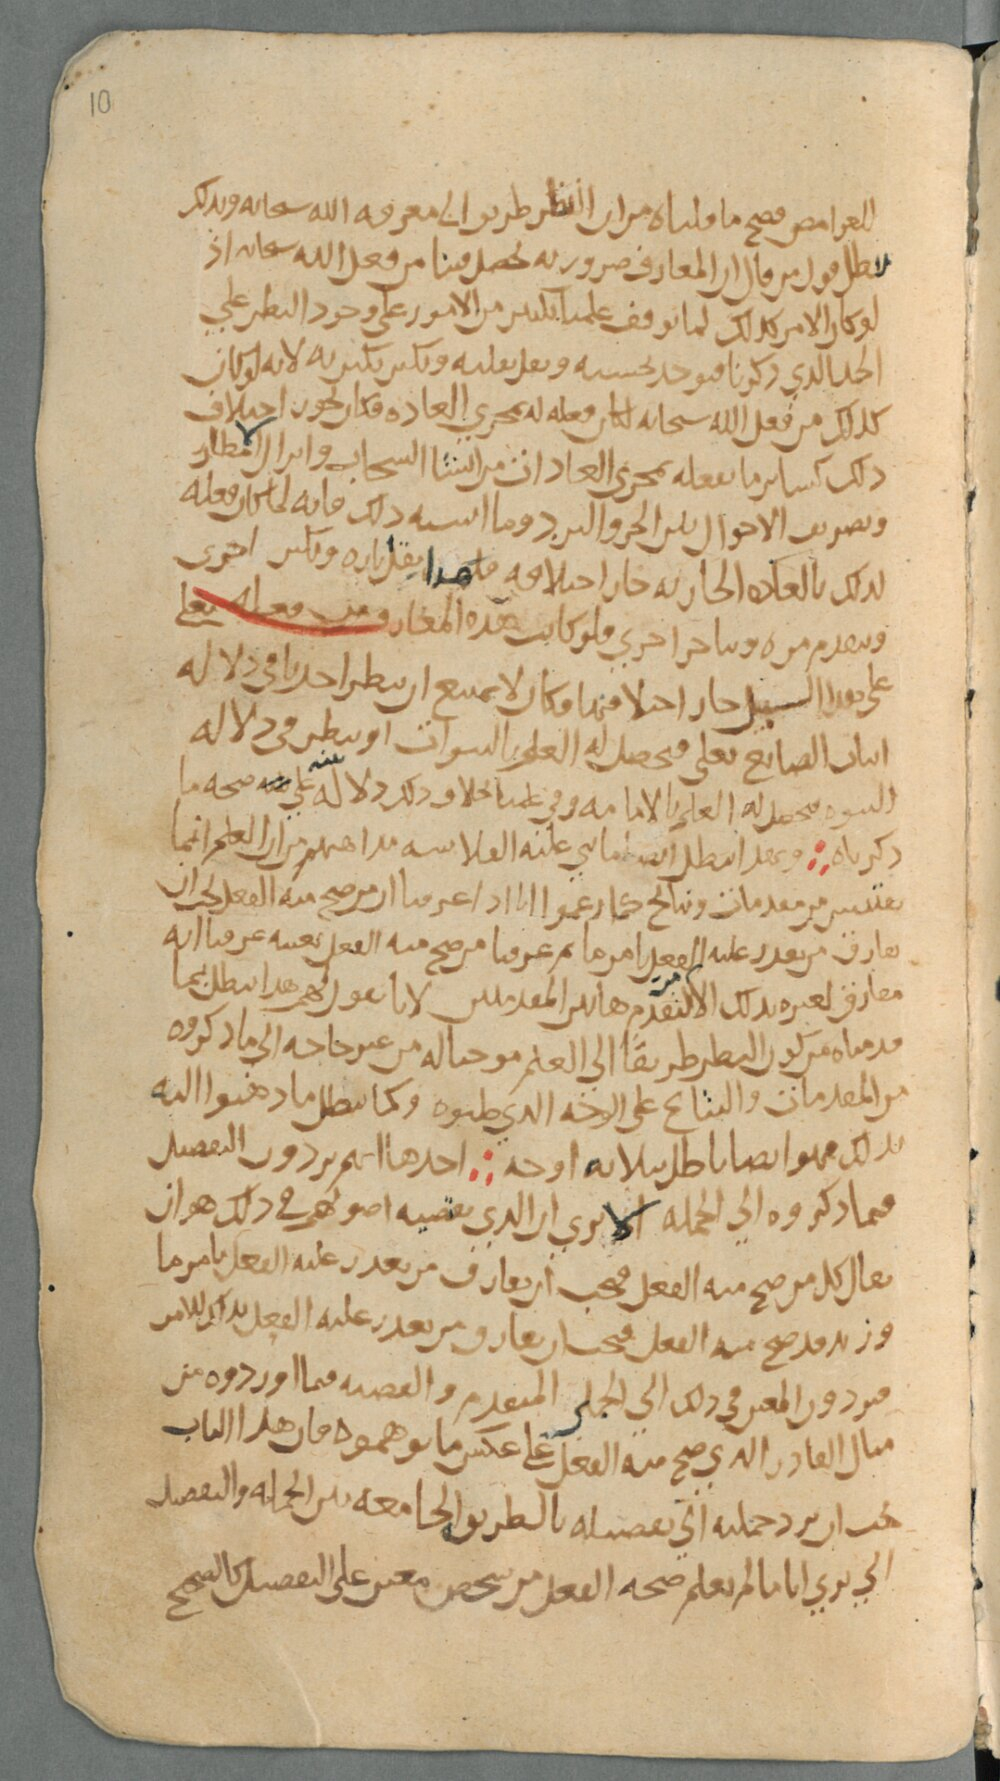 10
للغوامض فصح ما قلناه من ان النظر طريق الى معرفة الله سبحانه وبذلك
يبطل قول من قال ان المعارف ضرورية تحصل فينا من فعل الله سبحانه اذ
لو كان الامر كذلك لما توقف علمنا بكثير من الامور على وجود النظر على
الحد الذي ذكرنا فيوجد بحسبه ويقل بقلته ويكثر بكثرته لانه لو كان
كذلك من فعل الله سبحانه لكان فعله له بمجرى العادة فكان يجوز اختلاف
ذلك كسائر ما يفعله بمجرى العادات من انشا السحاب وانزال الامطار
وتصريف الاحوال بين الحر والبرد وما اشبه ذلك فانه لما كان فعله
لذلك بالعادة الجارية جاز اختلافه فلهذا يقل تارة ويكثر اخرى
ويتقدم مرة ويتاخر اخرى فلو كانت هذه المعارف من فعله تعلى
على هذا السبيل جاز اختلافها وكان لا يمتنع ان ينظر احدنا في دلالة
اثبات الصانع تعلى فيحصل له العلم بالنبوات او ينظر في دلالة
النبوة فيحصل له العلم بالامامة وفي علمنا بخلاف ذلك دلالة بينة على صحة ما
ذكرناه وبهذا يبطل ايضا ما بني عليه الفلاسفة مذاهبهم من ان العلم انما
يقتبس من مقدمات ونتائج كما زعموا انا اذا عرفنا ان من صح منه الفعل يجب ان
يفارق من يتعذر عليه الفعل بامر ما ثم عرفنا من صح منه الفعل بعينه عرفنا انه
مفارق لغيره بذلك الامر لتقدم هاتين المقدمتين لانا نقول لهم هذا يبطل بما
قدمناه من كون النظر طريقا الى العلم موجبا له من غير حاجة الى ما ذكروه
من المقدمات والنتائج على الوجه الذي ظنوه وكما يبطل ما ذهبوا اليه
بذلك فهو ايضا باطل بثلاثة اوجه احدها انهم يردون التفصيل
فيما ذكروه الى الجملة الا ترى ان الذي يقتضيه اصولهم في ذلك هو ان
يقال كل من صح منه الفعل فيجب ان يفارق من يتعذر عليه الفعل بامر ما
وزيد قد صح منه الفعل فيجب ان يفارق من يتعذر عليه الفعل بذلك الامر
فيردون المعين في ذلك الى الجملي المتقدم والقضية فيما اوردوه من
مثال القادر الذي صح منه الفعل على عكس ما توهموه فان هذا الباب
يجب ان يرد جملته الى تفصيله بالطريق الجامعة بين الجملة والتفصيل
الى ترى انا ما لم نعلم صحة الفعل من شخص معين على التفصيل كالصحيح